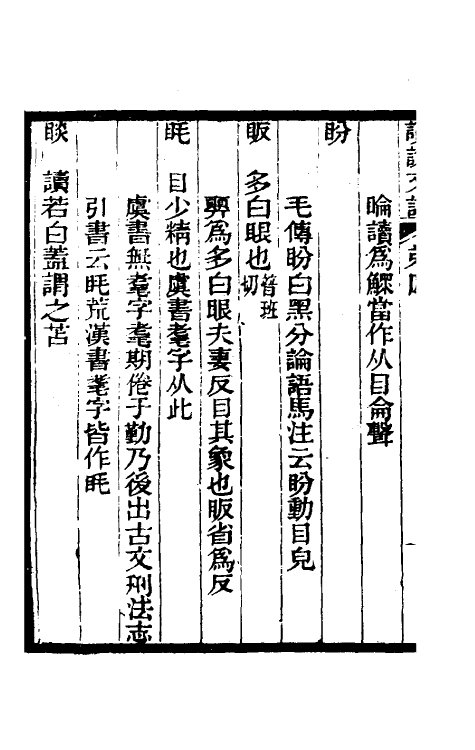 讀說文記 第四
睔讀爲鰥當作从目侖聲
盼
毛傳盼白黑分論語馬注云盼動目皃
販 多白眼也普班切
羿爲多白眼夫妻反目其象也販省爲反
眊 目少精也虞書耄字从此
虞書無耄字耄期倦于勤乃後出古文刑法志
引書云眊荒漢書耄字皆作眊
睒 讀若白蓋謂之苫